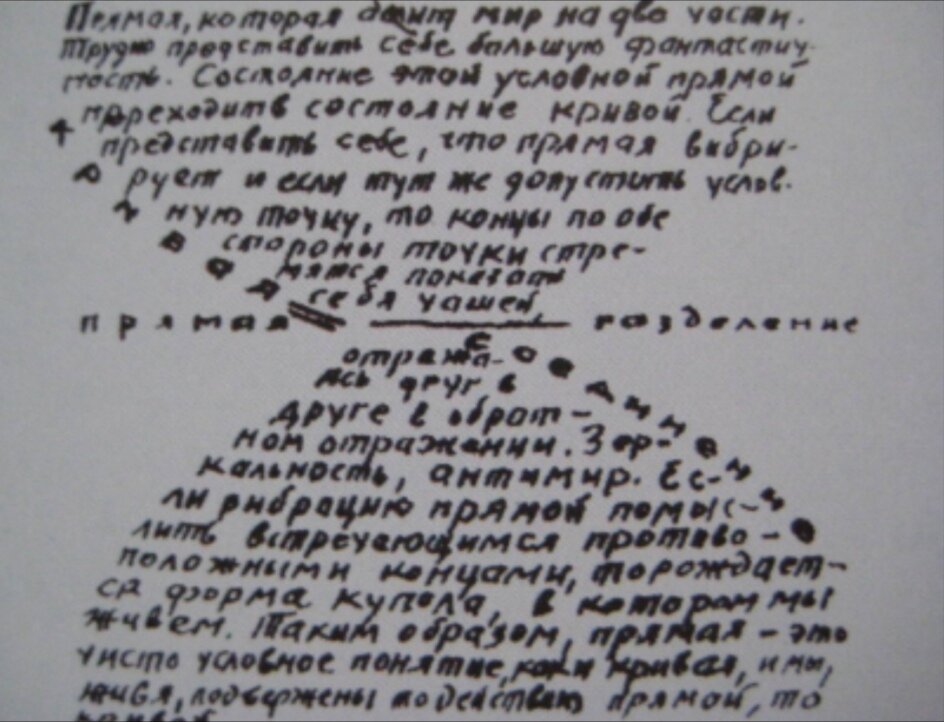 Прямая, которая делит мир на две части.
Трудно представить себе большую фантастич-
ность. Состояние этой условной прямой
переходит в состояние кривой. Если
представить себе, что прямая вибри-
рует и если тут же допустить услов.
ную точку, то концы по обе
стороны точки стре-
мятся показать
себя чашей,
прямая разделение
отража-
ясь друг в
друге в обрат-
ном отражении. Зер-
кальность, антимир. Ес-
ли вибрацию прямой помыс-
лить встречающимся противо-
положными концами, то рождает-
ся форма купола, в котором мы
живем. Таким образом, прямая - это
чисто условное понятие, как и кривая, и мы,
живя, подвержены то действию прямой, то
кривой
соединение